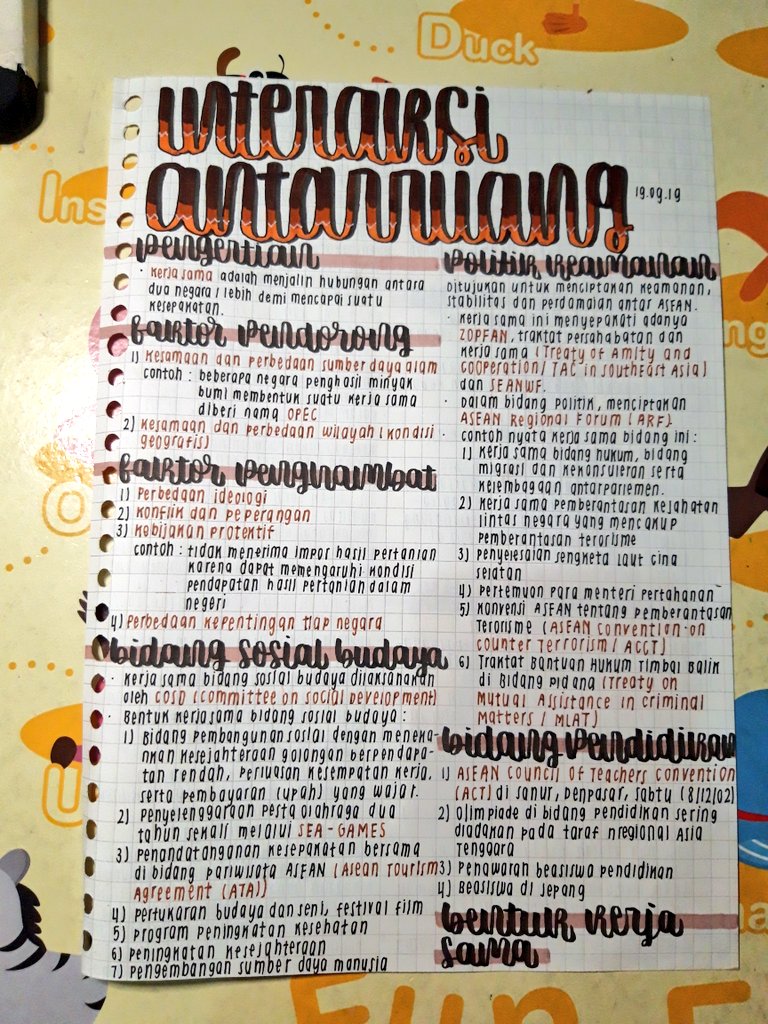 Duck
Ins
interaksi
antarruang
19.09.19
pengertian
· Kerja sama adalah menjalin hubungan antara
dua negara / lebih demi mencapai suatu
kesepakatan.
faktor pendorong
1) Kesamaan dan perbedaan sumber daya alam
contoh : beberapa negara penghasil minyak
bumi membentuk suatu kerja sama
diberi nama OPEC
2) Kesamaan dan perbedaan wilayah (kondisi
geografis)
faktor penghambat
1) Perbedaan ideologi
2) Konflik dan peperangan
3) Kebijakan protektif
contoh : tidak menerima impor hasil pertanian
karena dapat memengaruhi kondisi
pendapatan hasil pertanian dalam
negeri
4) Perbedaan kepentingan tiap negara
bidang sosial budaya
· Kerja sama bidang sosial budaya dilaksanakan
oleh COSD (Committee on Social Development)
· Bentuk kerja sama bidang sosial budaya :
1) Bidang pembangunan sosial dengan meneka-
nkan kesejahteraan golongan berpendapa-
tan rendah, perluasan kesempatan kerja,
serta pembayaran (upah) yang wajar.
2) Penyelenggaraan pesta olahraga dua
tahun sekali melalui SEA-GAMES
3) Penandatanganan kesepakatan bersama
di bidang pariwisata ASEAN (Asean Tourism
Agreement (ATA))
4) Pertukaran budaya dan seni, festival film
5) Program peningkatan kesehatan
6) Peningkatan kesejahteraan
7) Pengembangan sumber daya manusia
politik keamanan
Ditujukan untuk menciptakan keamanan,
stabilitas dan perdamaian antar ASEAN.
· Kerja sama ini menyepakati adanya
ZOPFAN, traktat persahabatan dan
kerja sama (Treaty of Amity and
Cooperation / TAC in Southeast Asia)
dan SEANWF.
· Dalam bidang politik, menciptakan
ASEAN Regional Forum (ARF)
· Contoh nyata kerja sama bidang ini :
1) Kerja sama bidang hukum, bidang
migrasi dan kekonsuleran serta
kelembagaan antarparlemen.
2) Kerja sama pemberantasan kejahatan
lintas negara yang mencakup
pemberantasan terorisme
3) Penyelesaian sengketa Laut Cina
Selatan
4) Pertemuan para menteri pertahanan
5) Konvensi ASEAN tentang Pemberantasan
Terorisme (ASEAN Convention on
Counter Terrorism / ACCT)
6) Traktat Bantuan Hukum Timbal Balik
di Bidang Pidana (Treaty on
Mutual Assistance in Criminal
Matters / MLAT)
bidang pendidikan
1) ASEAN Council of Teachers Convention
(ACT) di Sanur, Denpasar, Sabtu (8/12/02)
2) Olimpiade di bidang pendidikan sering
diadakan pada taraf nregional Asia
Tenggara
3) Penawaran beasiswa pendidikan
4) Beasiswa di Jepang
bentuk kerja
sama